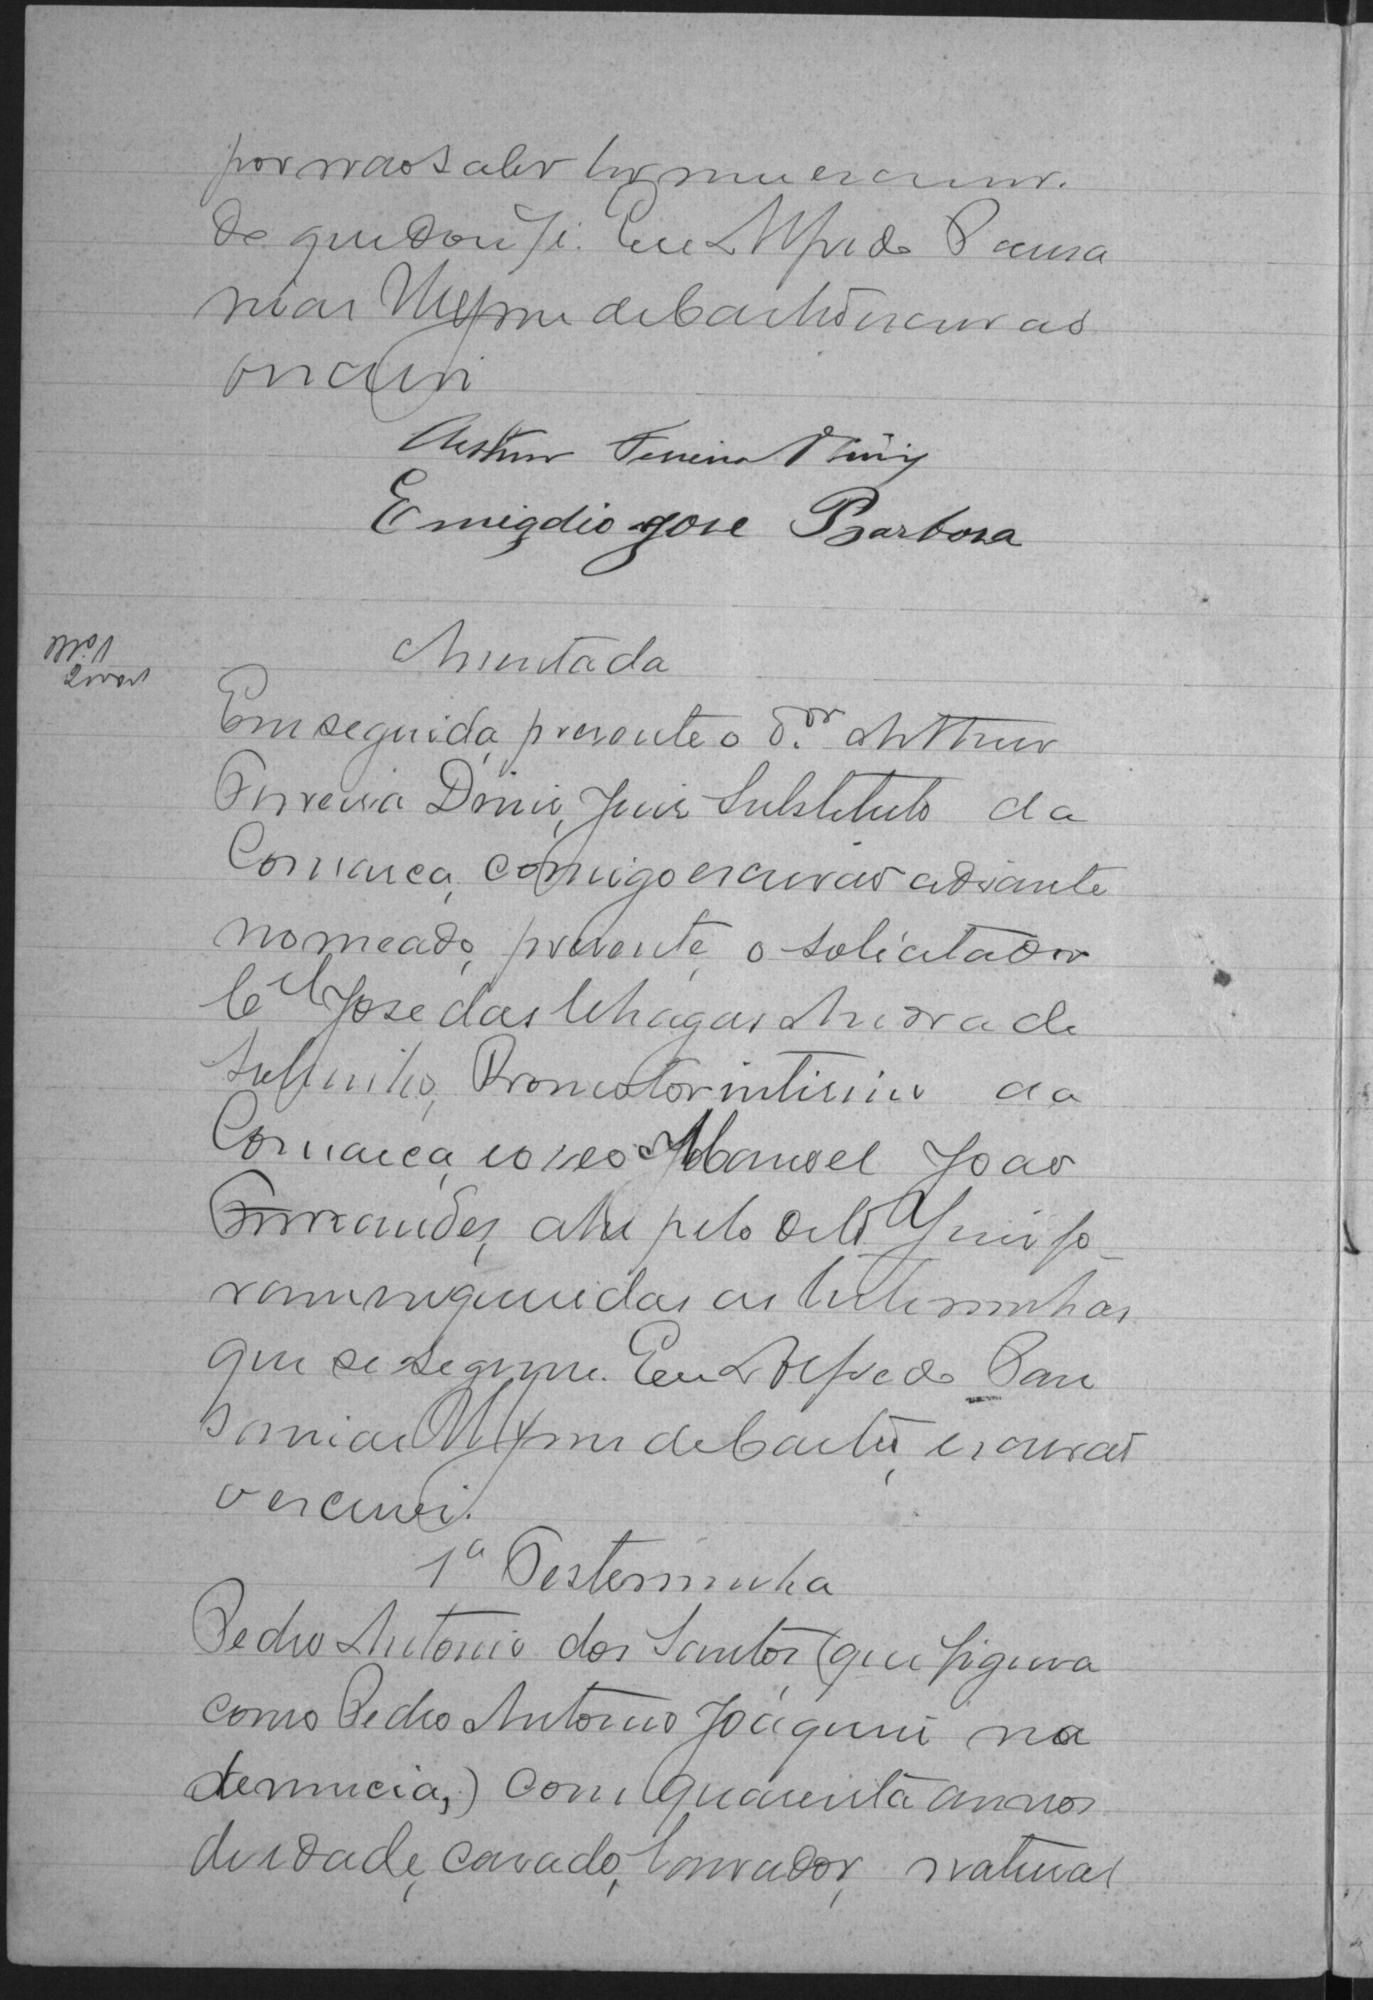 por não saber ler nem escrever.
do que dou fé. Eu Alfredo Pausa
nias de Castro escrivão
o escrevi
Arthur Ferreira Diniz
Emigdio Jose Barbosa
Assentada
Em seguida, presente o D.or Arthur
Ferreira Diniz, Juiz Substituto da
Comarca, comigo escrivão adiante
nomeado, presente, o solicitador
Cel José das Chagas Andrade
Sobrinho, Promotor interino da
Comarca, e o reo Manoel João
Fernandes, ahi pelo dito Juiz fo-
ram inqueridas as testeminhas
que se seguem. Eu Alfredo Pau
sanias de Castro, escrivão
o escrevi.
1a Testeminha
Pedro Antonio dos Santos (que figura
como Pedro Antonio Joaquim na
denuncia,) com quarenta annos
de idade, casado, lavrador, natural